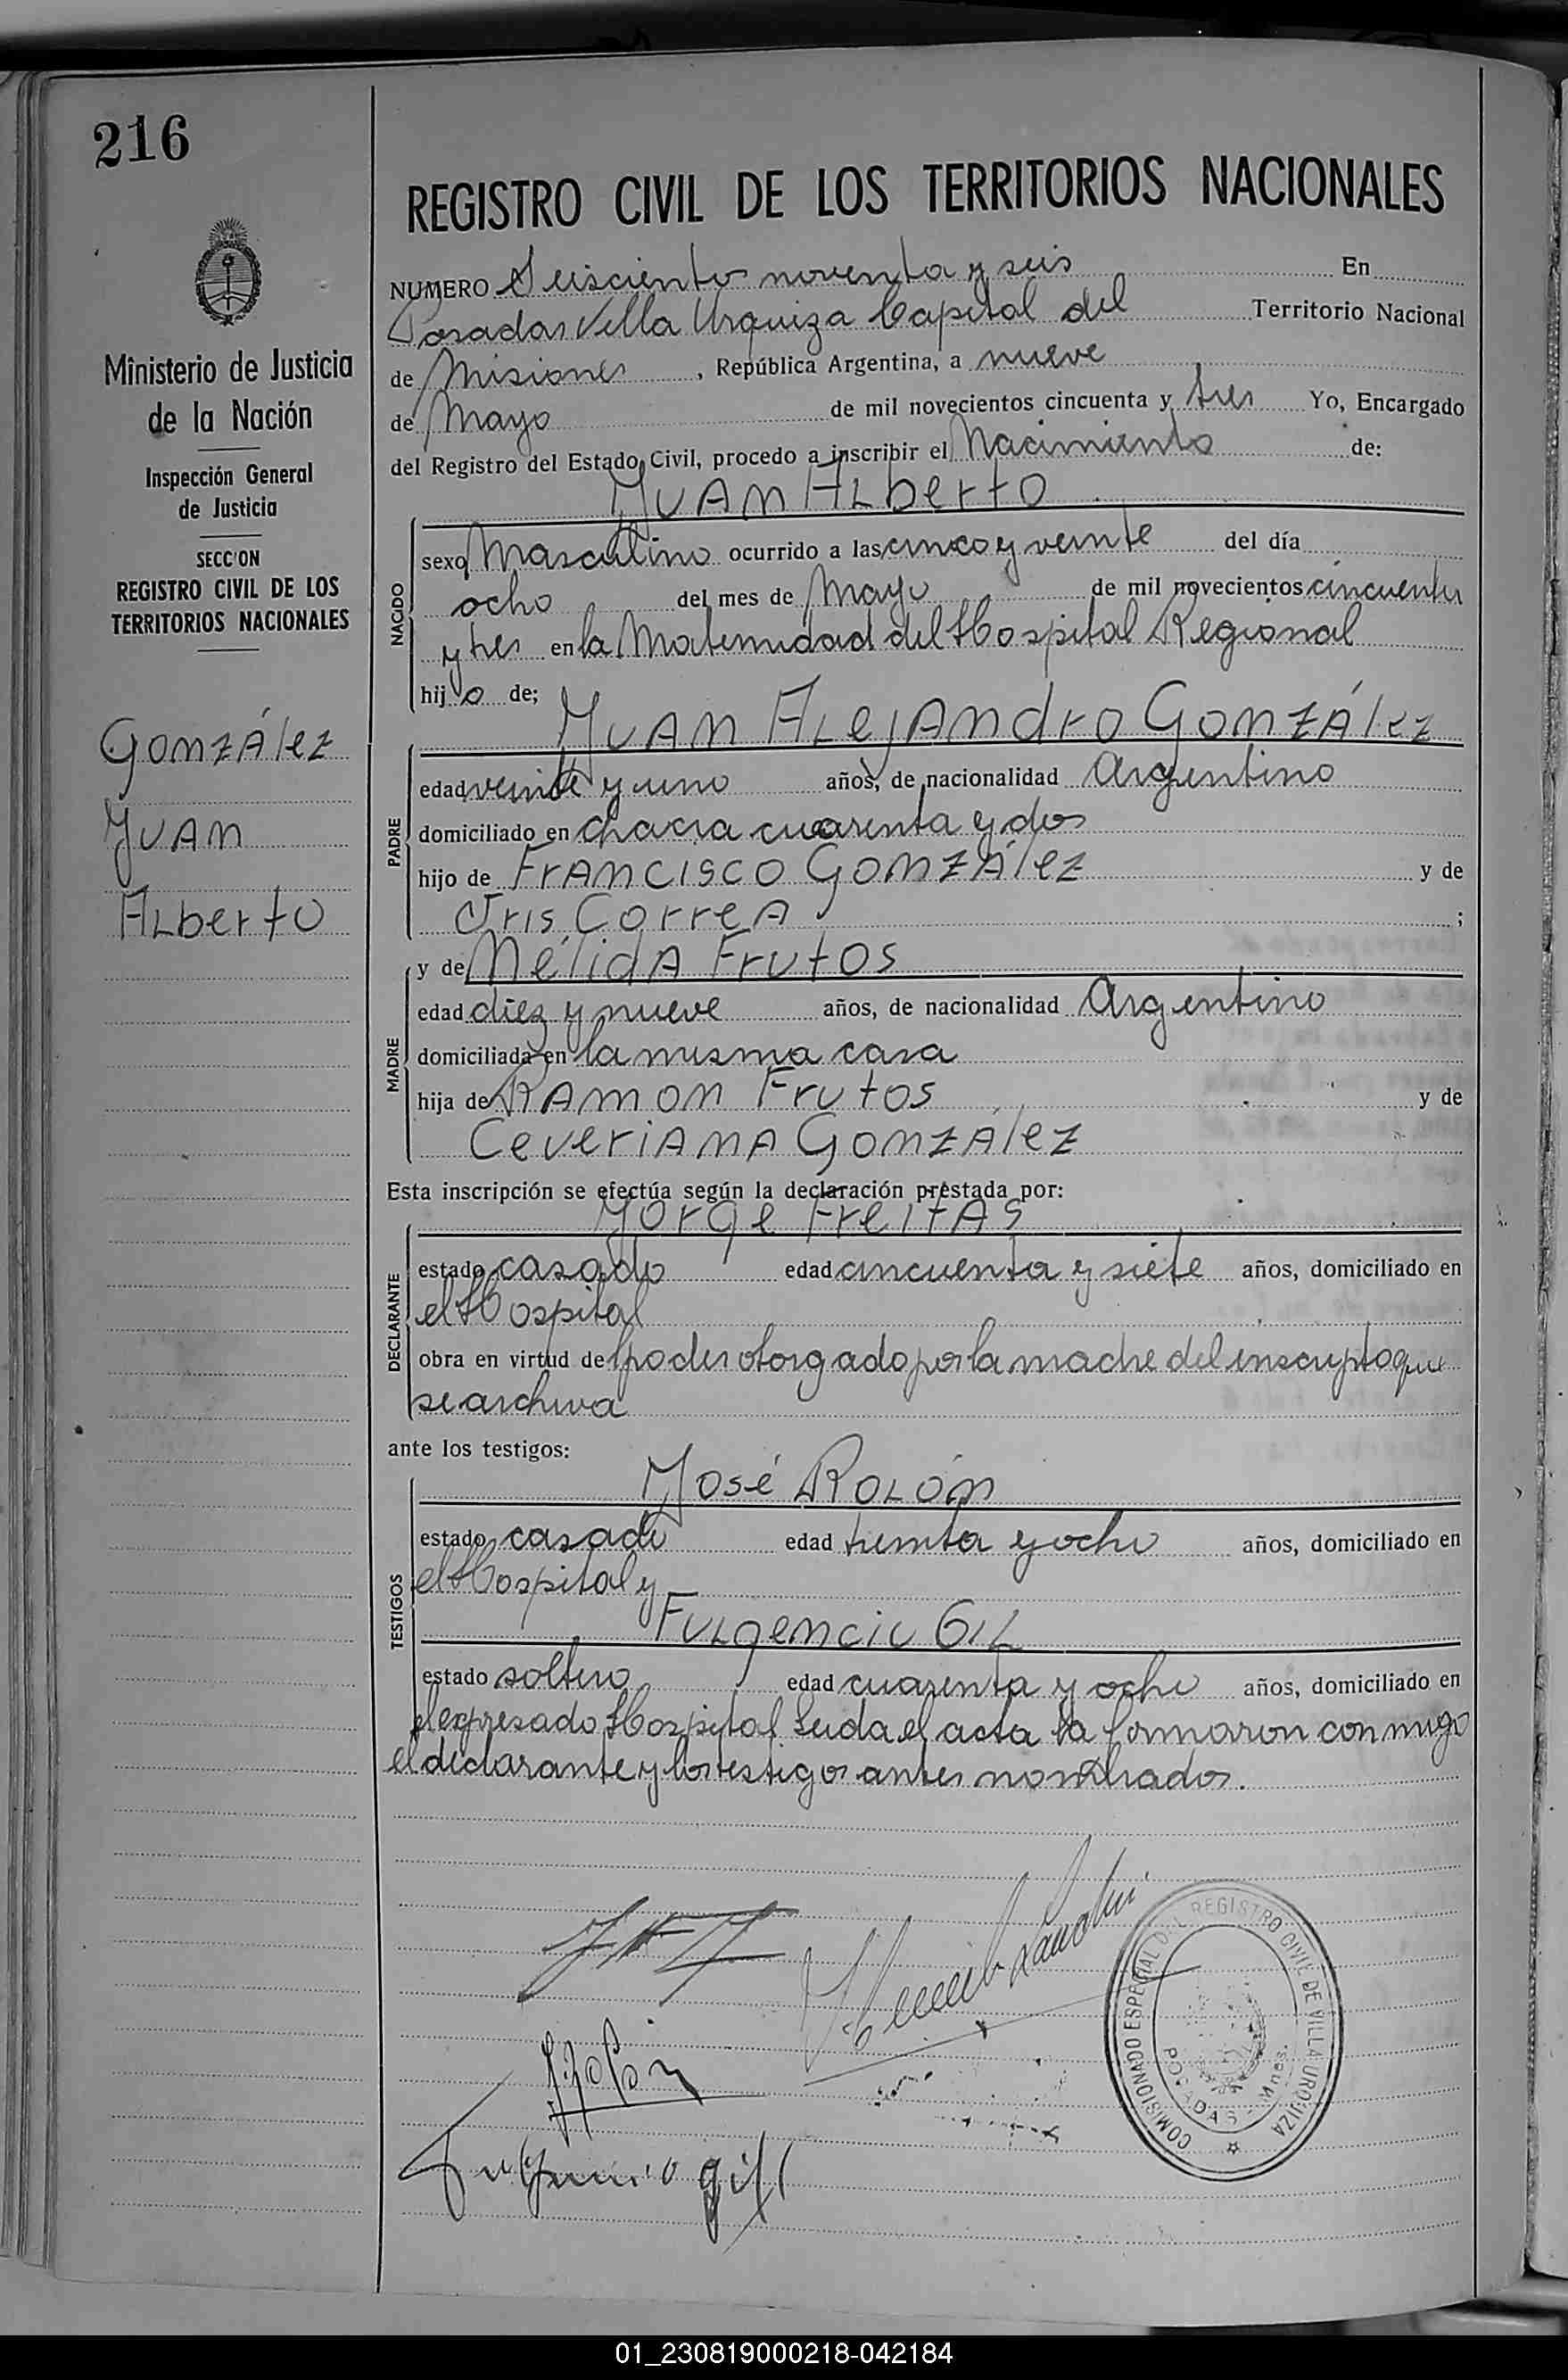 216
REGISTRO CIVIL DE LOS TERRITORIOS NACIONALES
Ministerio de Justicia
de la Nación
Inspección General
de Justicia
SECC'ON
REGISTRO CIVIL DE LOS
TERRITORIOS NACIONALES
González
Juan
Alberto
NUMERO Seiscientos noventa y seis En
Posadas Villa Urquiza Capital del Territorio Nacional
de Misiones, República Argentina, a nueve
de Mayo de mil novecientos cincuenta y tres Yo, Encargado
del Registro del Estado Civil, procedo a inscribir el Nacimiento de:
Juan Alberto
NACIDO
sexo Masculino ocurrido a las cinco y veinte del día
ocho del mes de Mayo de mil novecientos cincuenta
y tres en la Maternidad del Hospital Regional
hijo de;
Juan Alejandro González
PADRE
edad veinte y uno años, de nacionalidad Argentino
domiciliado en chacra cuarenta y dos
hijo de Francisco González y de
Iris Correa ;
MADRE
y de Nélida Frutos
edad diez y nueve años, de nacionalidad Argentino
domiciliada en la misma casa
hija de Ramon Frutos y de
Ceveriana González
Esta inscripción se efectúa según la declaración prestada por:
Jorge Freitas
DECLARANTE
estado casado edad cincuenta y siete años, domiciliado en
el Hospital
obra en virtud del poder otorgado por la madre del inscripto que
se archiva
ante los testigos:
José Rolón
TESTIGOS
estado casado edad treinta y ocho años, domiciliado en
el Hospital y
Fulgencio Gil
estado soltero edad cuarenta y ocho años, domiciliado en
el expresado Hospital Leida el acta la firmaron conmigo
el declarante y los testigos antes nombrados.
COMISIONADO ESPECIAL DEL REGISTRO CIVIL DE VILLA URQUIZA
POSADAS - Mnes.
JRolón
Fulgencio gil
01_230819000218-042184